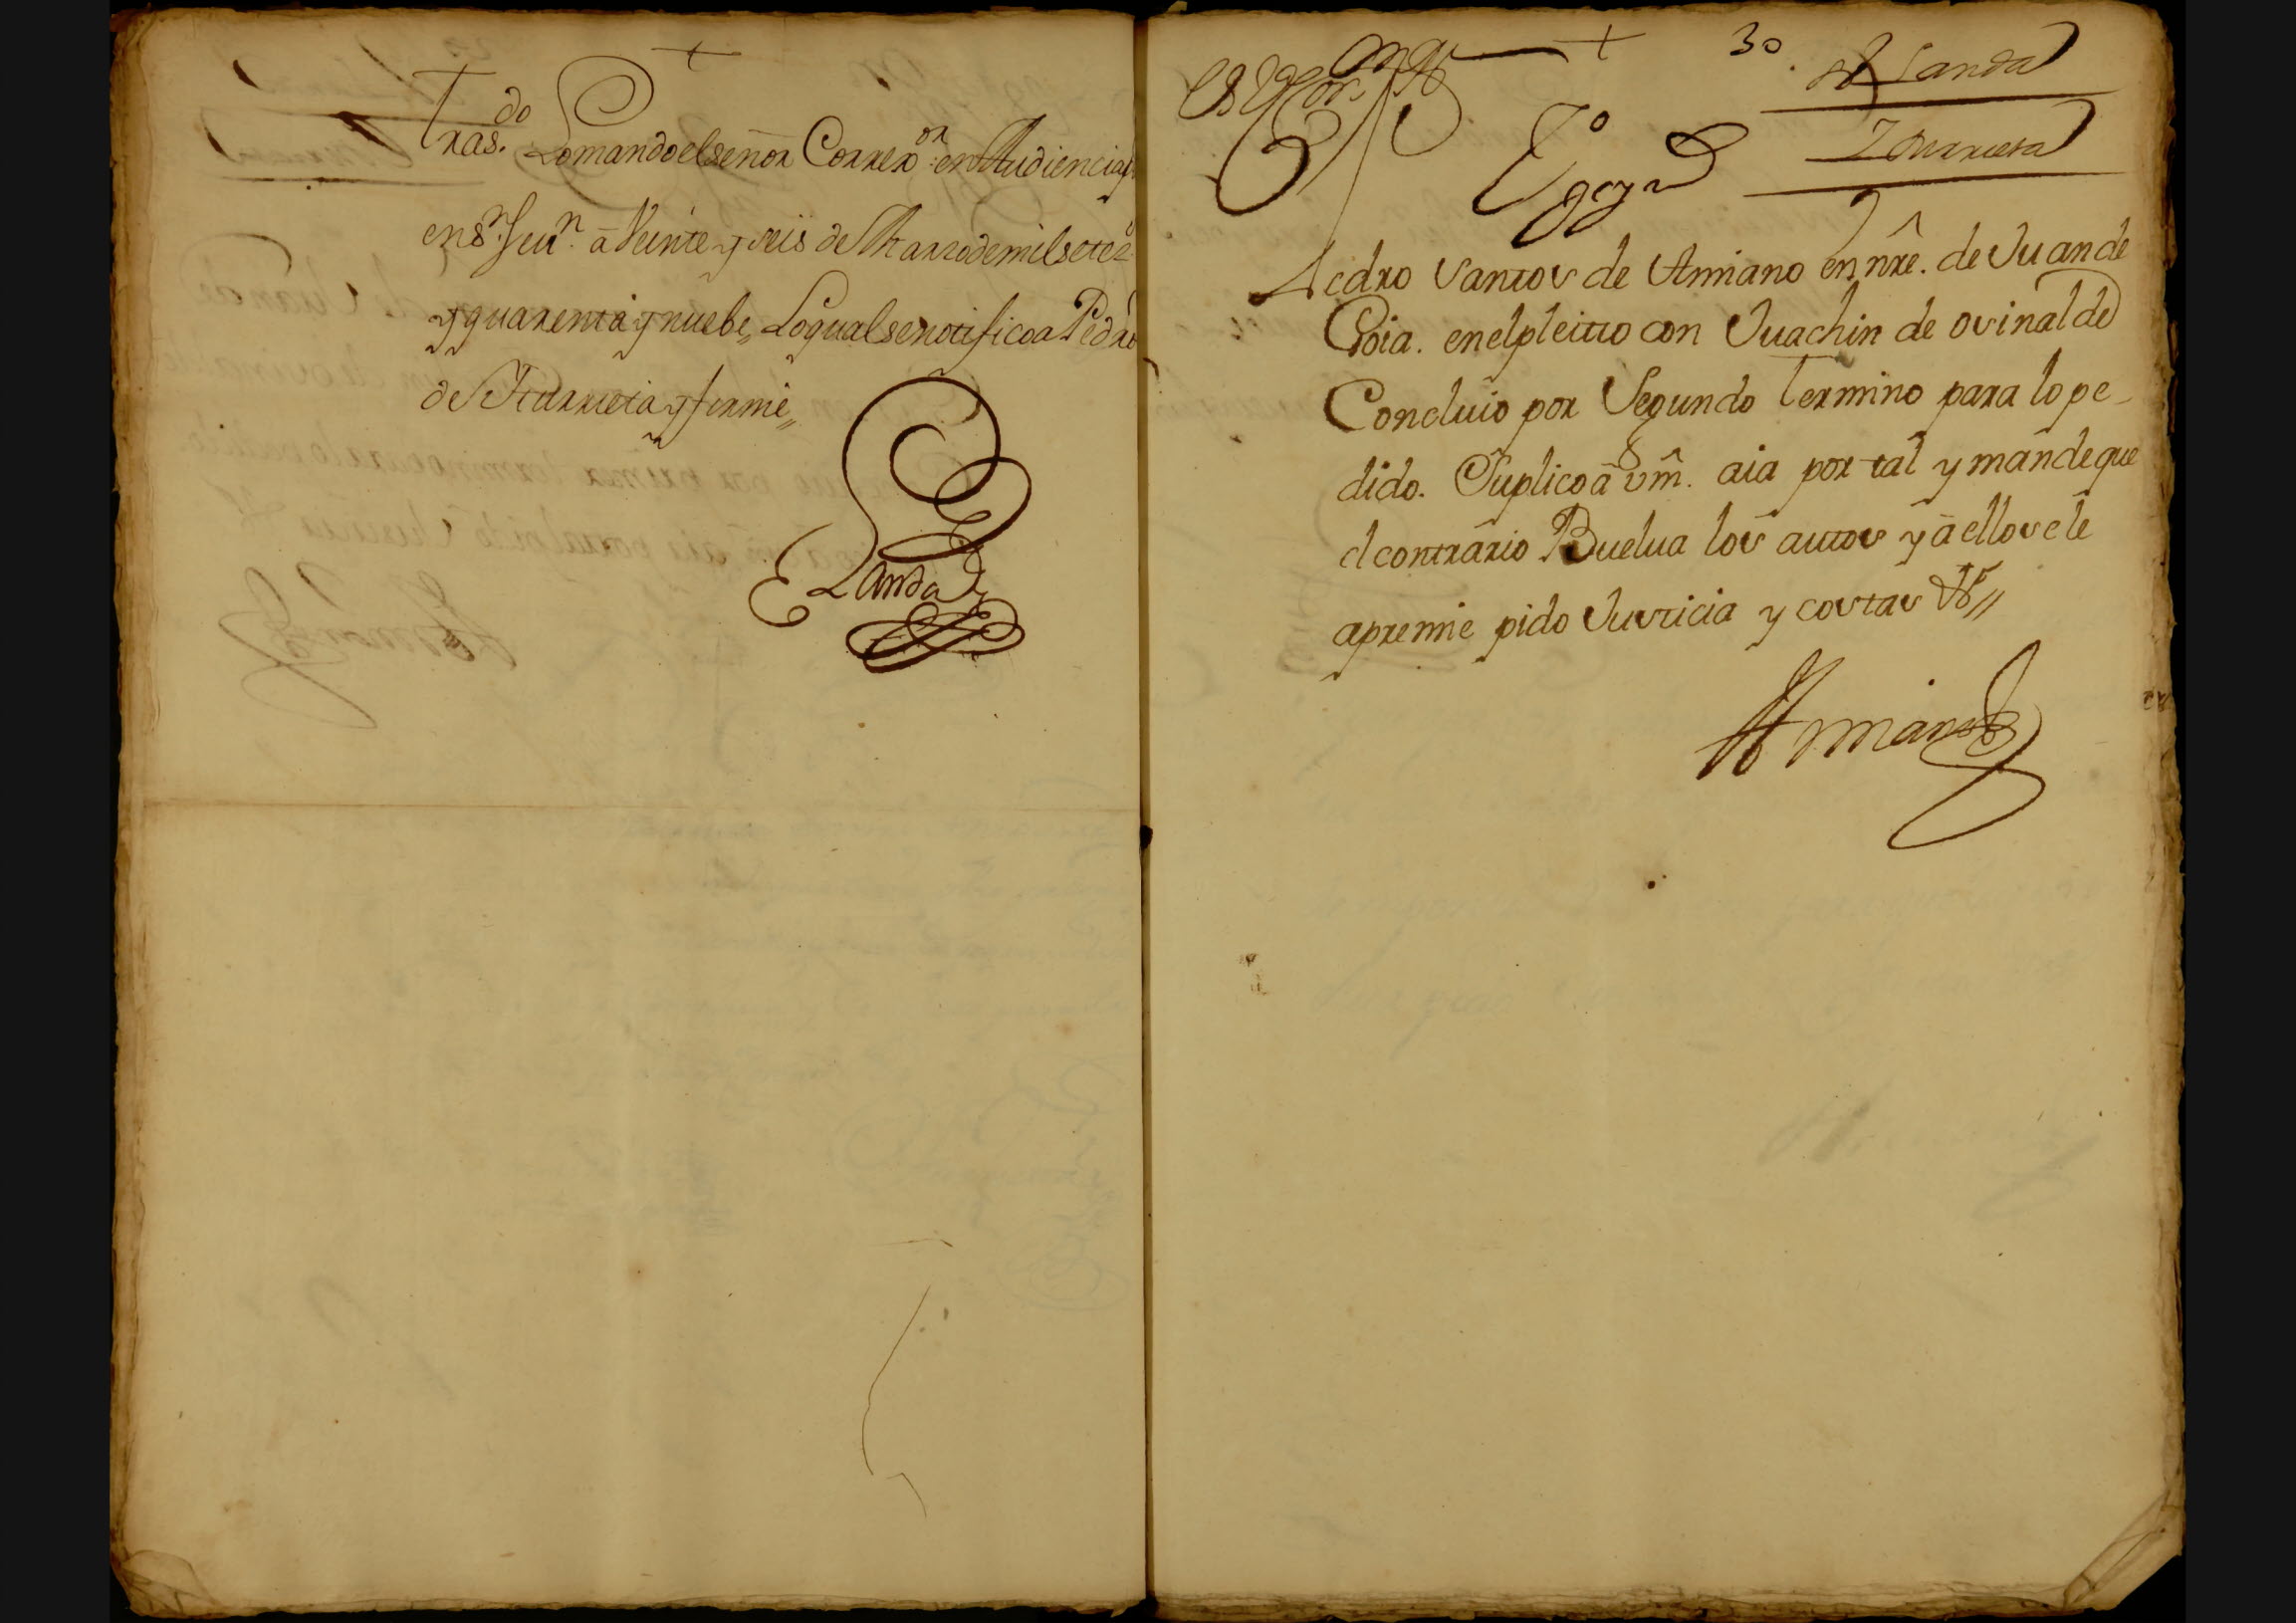 +
Tras.do Lo mando el señor Correx.or en Audiencia
en Sn. Seun. â Veinte y seis de Marzo de mil setez.s
y quarenta y nuebe,, Lo qual se notifico a Pedro
de Iturrieta y firmé,,
Landa
+ 30.
Landa
Iturrieta
Pedro Santos de Amiano en nrê. de Juan de
Goia. en el pleitto con Juachin de osinalde
Concluio por Segundo termino para lo pe-
dido. Suplico â vm̂. aia por tal y mande que
el contrario Buelua los auttos y â ellos se le
apremie pido Justicia y costas &//
Amiano